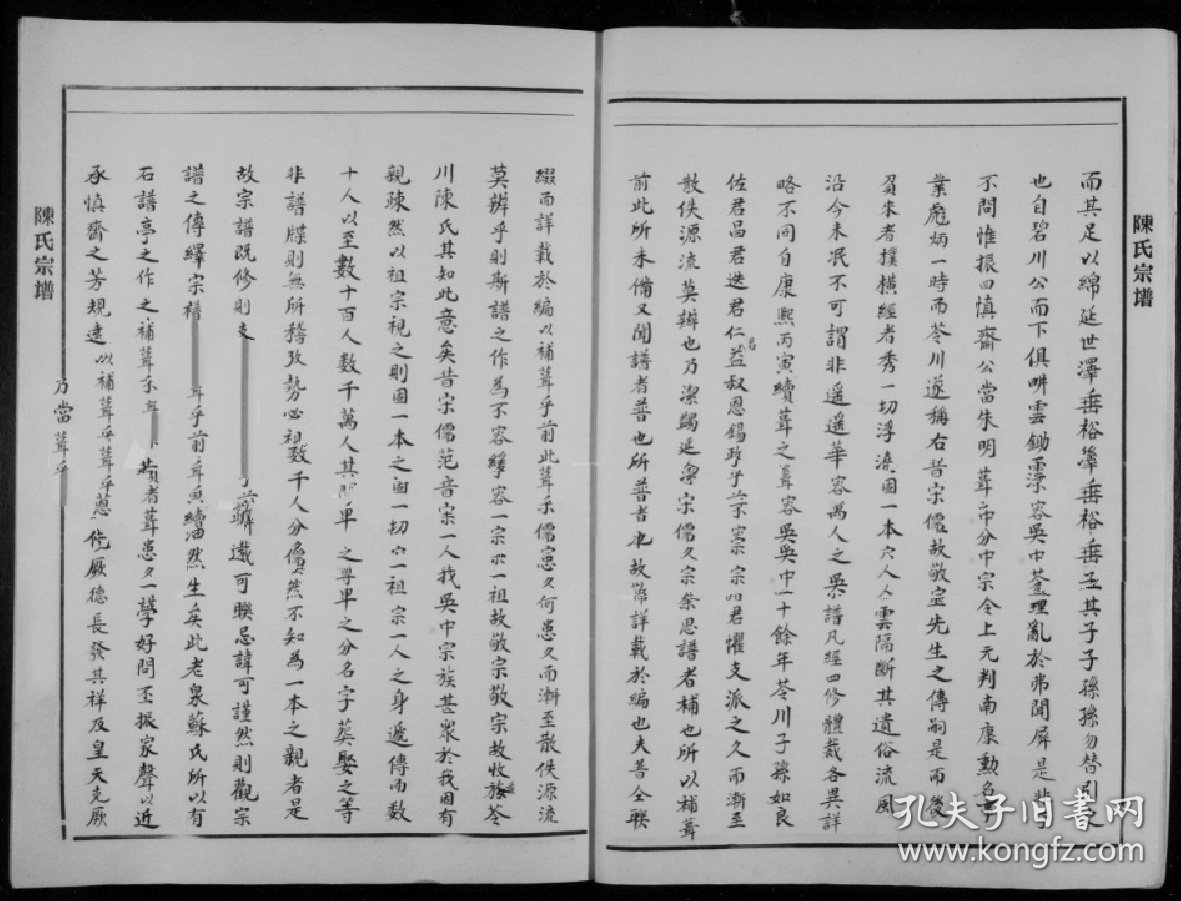 陳氏宗譜
而其足以綿延世澤垂裕肇垂裕垂並其子子孫孫勿替引之
也自碧川公而下俱畊雲鋤 客吳中 理亂於弗聞屏是
不問惟振四慎齋公當朱明葺 分中宗令上元判南康勳名
業彪炳一時而苓川遂稱右昔宗儒故敬 先生之傳嗣是而後
負耒者樸橫經者秀一切浮澆固一本 人人雲隔斷其遺俗流風
沿今未泯不可謂非遥遥華容禹人之吳譜凡經四修體裁各異詳
略不同自康熙丙寅續葺之葺容吳吳中一十餘年苓川子孫如良
佐君昌君迭君仁益叔恩錫 宗 君懼支派之久而漸至
散佚源流莫辨也乃潔蠲延 宋儒久宗 思譜者補也所以補葺
前此所未備又聞譜者普也所普者 故 詳載於編也夫普全聯
綴而詳載於編以補葺乎前此葺 儒 久何患久而漸至散佚源流
莫辨乎則斯譜之作為不容緩容一宗 一祖故敬宗敬宗故收族苓
川陳氏其知此意矣昔宋儒范 宗一人我吳中宗族甚衆於我固有
親疎然以祖宗視之則固一本之固一切 一祖宗一人之身遞傳而數
十人以至數十百人數千萬人其 單 之尊卑之分名字葬娶之等
非譜牒則無所稽攷勢必祖數千人分 然不知為一本之親者是
故宗譜既修則 可聯忌諱可謹然則觀宗
譜之傳繹宗 乎前 續油然生矣此老泉蘇氏所以有
石譜亭之作之補葺 者葺患久一學好問丕振家聲以近
承慎齋之芳規遠以補葺乎葺乎 厥德長發其祥及皇天克厥
乃當葺乎
陳氏宗譜
孔夫子旧書网
www.kongfz.com